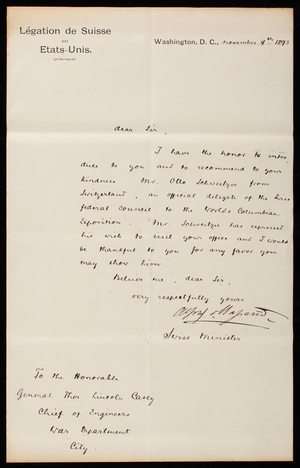 Légation de Suisse
aux
Etats-Unis.
Washington, D. C., November 9th 1893
dear Sir,
I have the honor to intro
duce to you and to recommend to your
kindness Mr. Otto Schweitzer from
Switzerland, an official delegate of the Swiss
federal council to the World's Columbian
Exposition. Mr. Schweitzer has expressed
his wish to visit your office and I would
be thankful to you for any favor you
may show him.
Believe me, dear Sir,
very respectfully yours
Swiss Minister
To the Honorable
General Thos Lincoln Casey
Chief of Engineers
War Department
City.